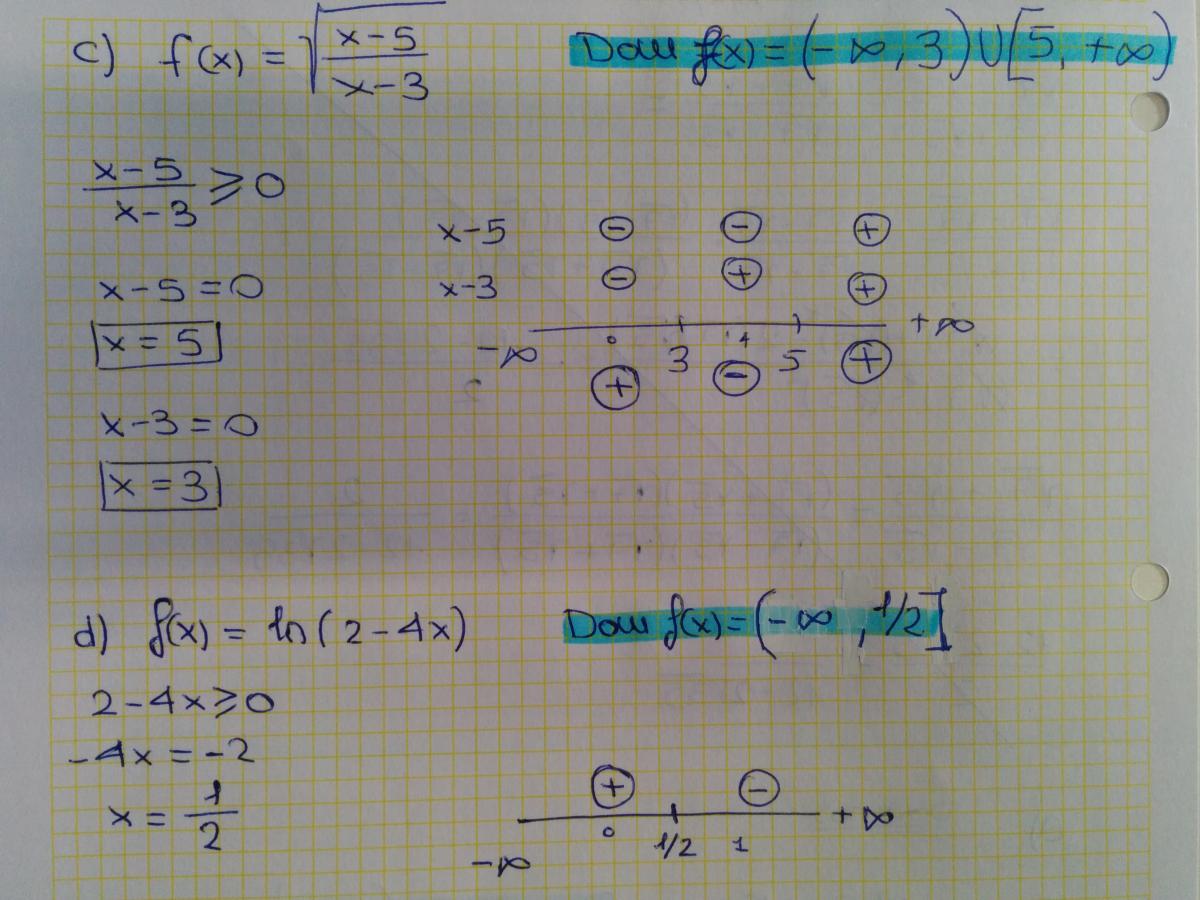 c) f(x) = √((x-5)/(x-3)) Dom f(x) = (-∞, 3) ∪ [5, +∞)
(x-5)/(x-3) ≥ 0
x-5 ⊖ ⊖ ⊕
x-5 = 0
x-3 ⊖ ⊕ ⊕
x = 5
-∞ 0 3 4 5 +∞
⊕ ⊖ ⊕
x-3 = 0
x = 3
d) f(x) = ln(2-4x) Dom f(x) = (-∞, 1/2]
2-4x ≥ 0
-4x = -2
⊕ ⊖
x = 1/2
-∞ 0 1/2 1 +∞